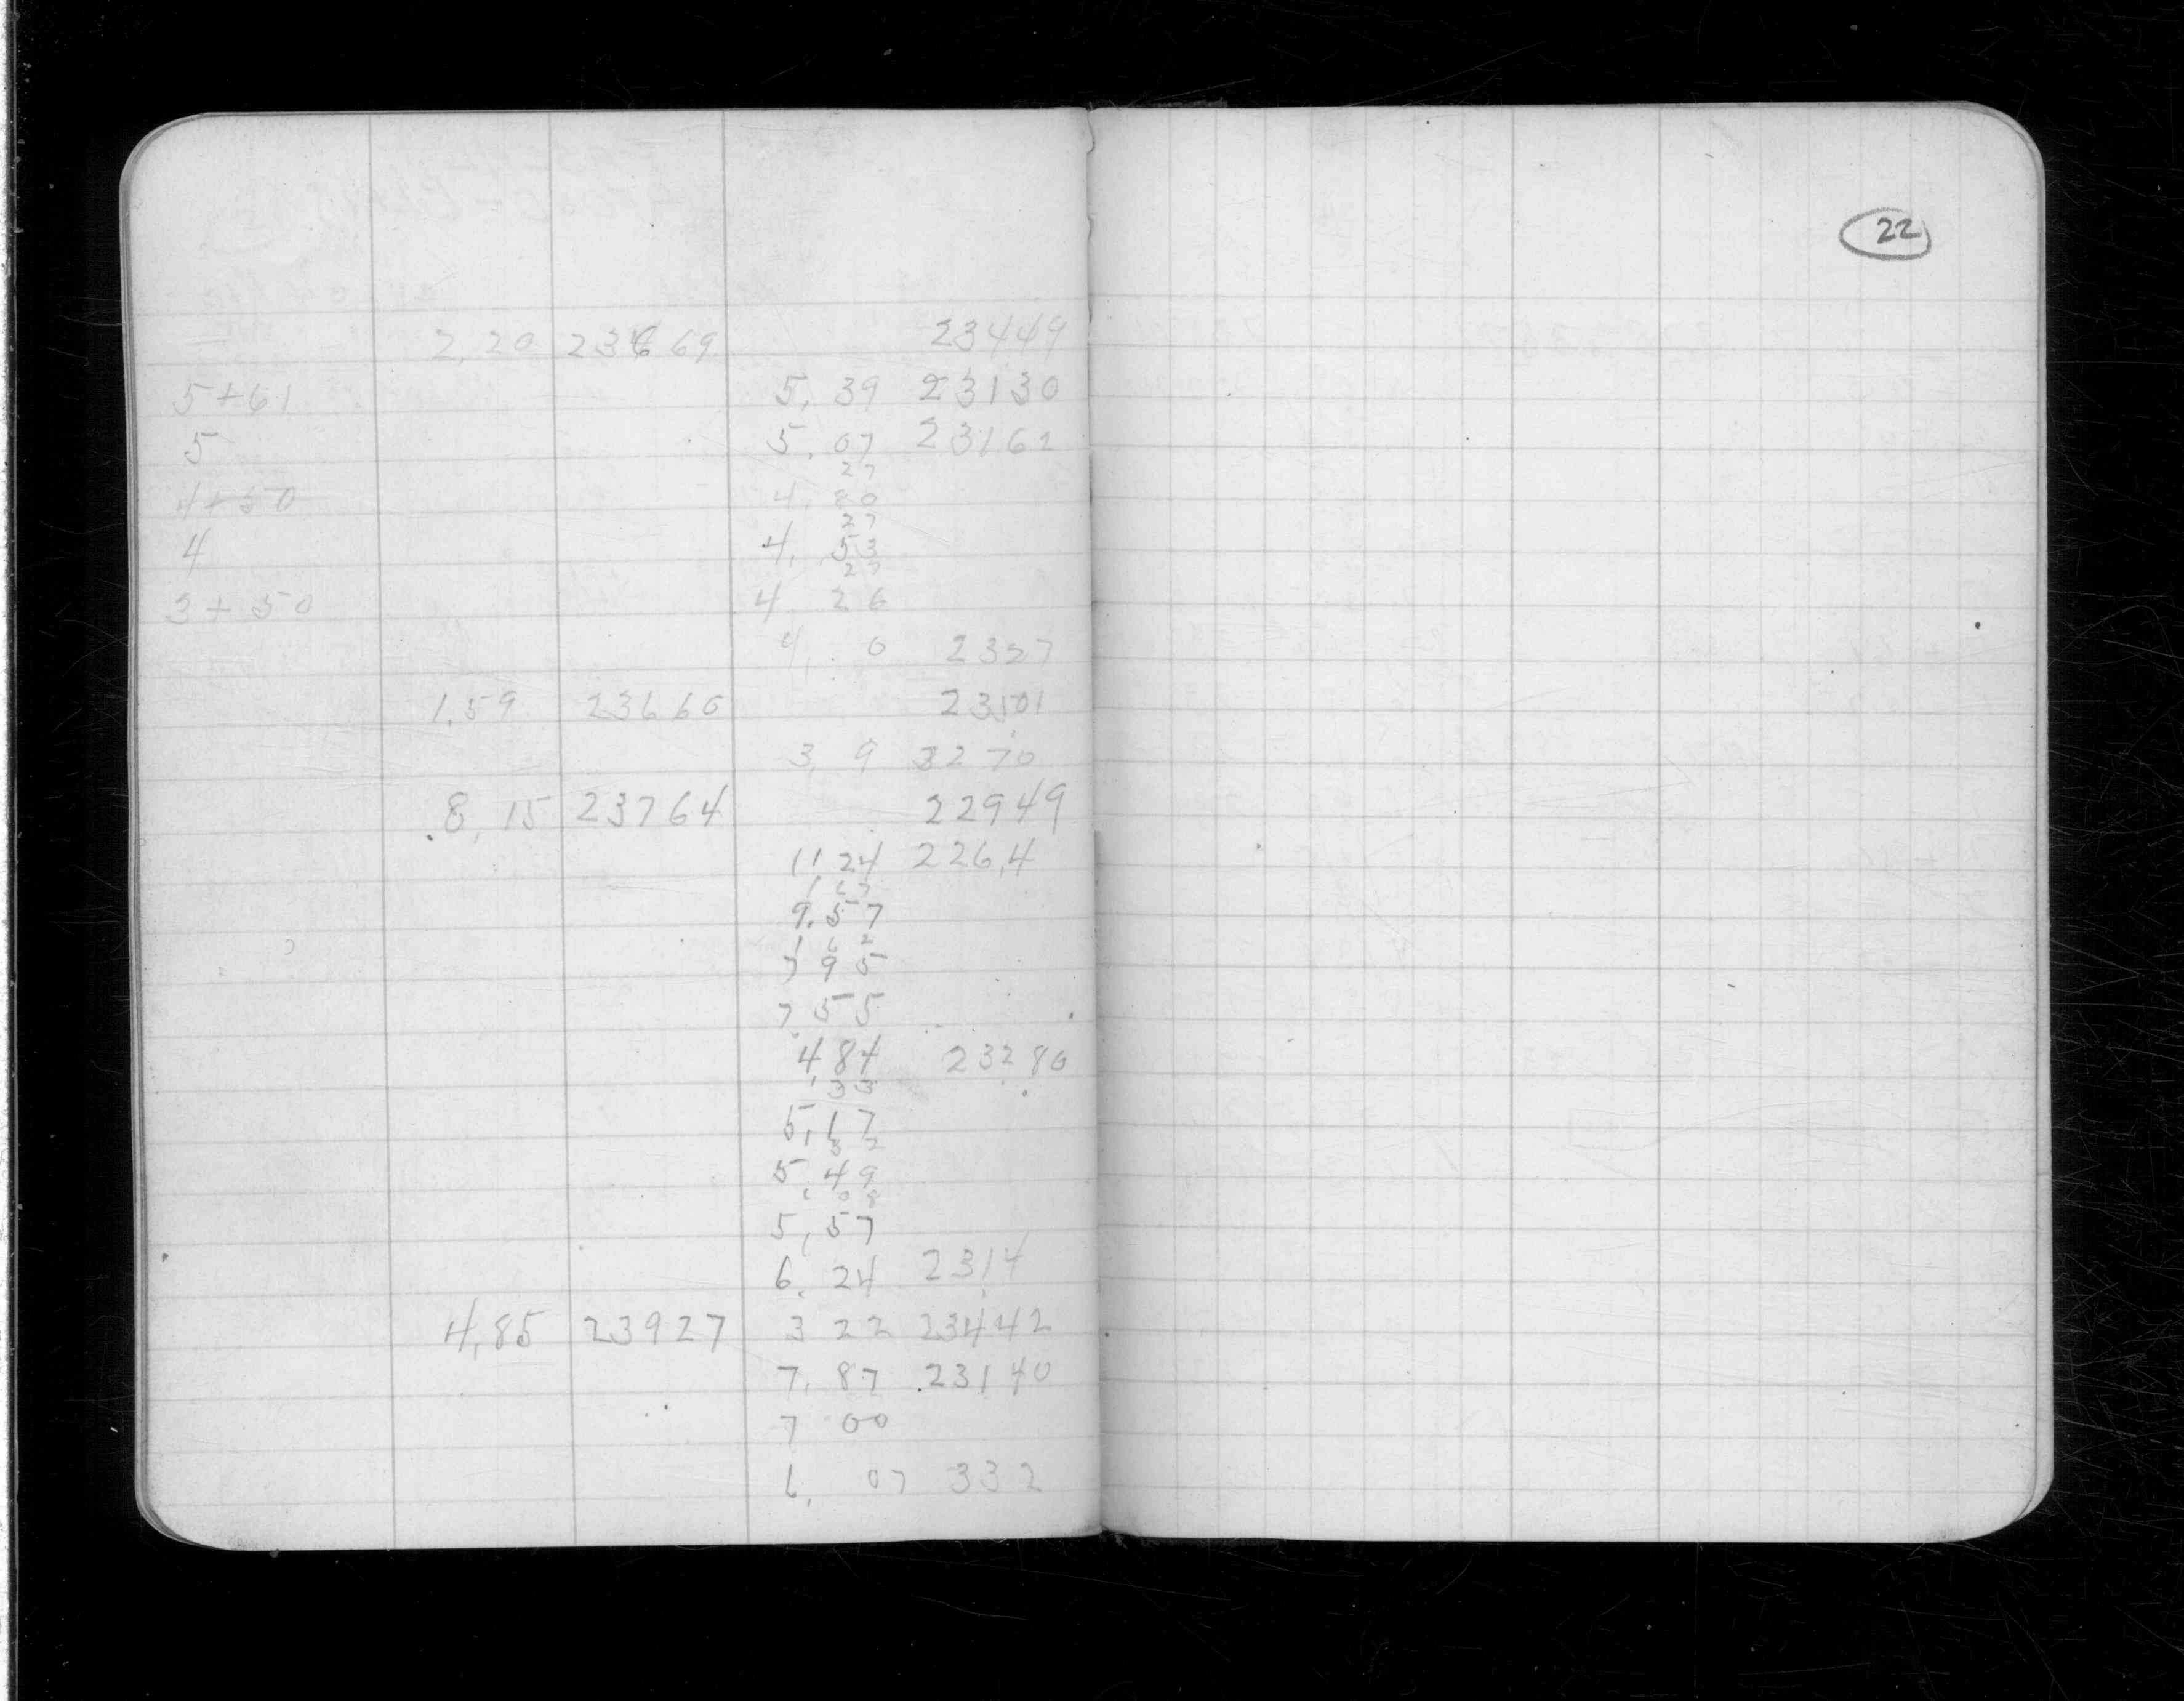 2,20 23669 23449
5+61 5,39 23130
5 5,07 23162
27
4+50 4,80
27
4 4,53
27
3+50 4 26
4, 0 2327
1,59 23660 23501
3, 9 3270
8,15 23764 22949
11 24 226,4
1 67
9,57
1 62
7 95
7 55
4 84 23280
33
5,17
32
5,49
08
5,57
6, 24 2314
4,85 23927 3 22 23442
7,87 23140
7 00
07 332
22